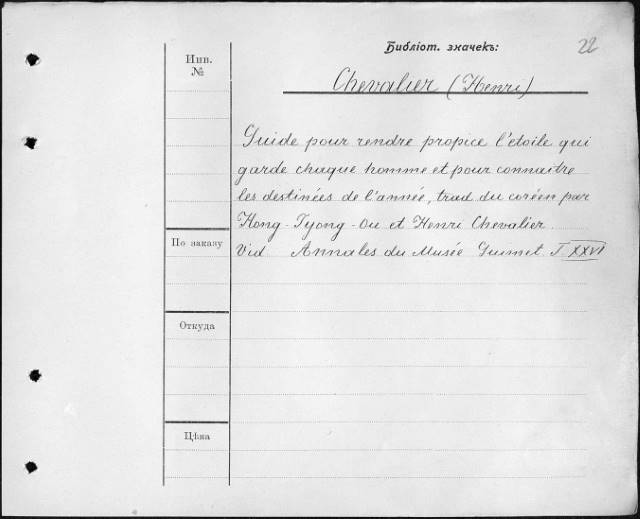 Библіот. значекъ:
22
Инв.
№
Chevalier (Henri)
Guide pour rendre propice l'étoile qui
garde chaque homme et pour connaitre
les destinées de l'année, trad du coréen par
Hong-Tyong-Ou et Henri Chevalier.
По заказу
Vid Annales du Musée Guimet. T. XXVI
Откуда
Цѣна